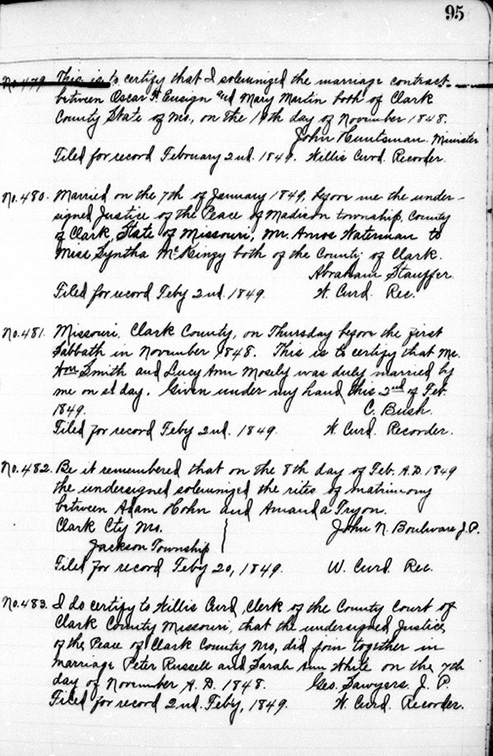 95
No. 479. This is to certify that I solemnized the marriage contract
between Oscar H. Ensign and Mary Martin both of Clark
County State of Mo, on the 19th day of November 1848.
John Huntsman Minister
Filed for record February 2nd. 1849. Willis Curd Recorder.
No. 480. Married on the 7th of January 1849, before me the under-
signed Justice of the Peace of Madison township, County
of Clark State of Missouri, Mr. Amos Waterman to
Miss Syntha McKinzy both of the County of Clark.
Abraham Stauffer
Filed for record Feby 2nd. 1849. W. Curd Rec.
No. 481. Missouri, Clark County, on Thursday before the first
Sabbath in November 1848. This is to certify that Mr.
Wm Smith and Lucy Ann Mosely was duly married by
me on sd day. Given under my hand this 2nd of Feb.
1849. C. Bush.
Filed for record Feby 2nd. 1849. W. Curd Recorder.
No. 482. Be it remembered that on the 8th day of Feb. A.D. 1849
the undersigned solemnized the rites of matrimony
between Adam Hohn and Amanda Tryon.
Clark Cty Mo. } John N. Boulware J.P.
Jackson Township
Filed for record Feby 20, 1849. W. Curd Rec.
No. 483. I do certify to Willis Curd, Clerk of the County Court of
Clark County Missouri, that the undersigned Justice
of the Peace of Clark County Mo, did join together in
marriage Peter Russell and Sarah Ann White on the 7th
day of November A.D. 1848. Geo. Sawyers, J. P.
Filed for record 2nd. Feby, 1849. W. Curd. Recorder.